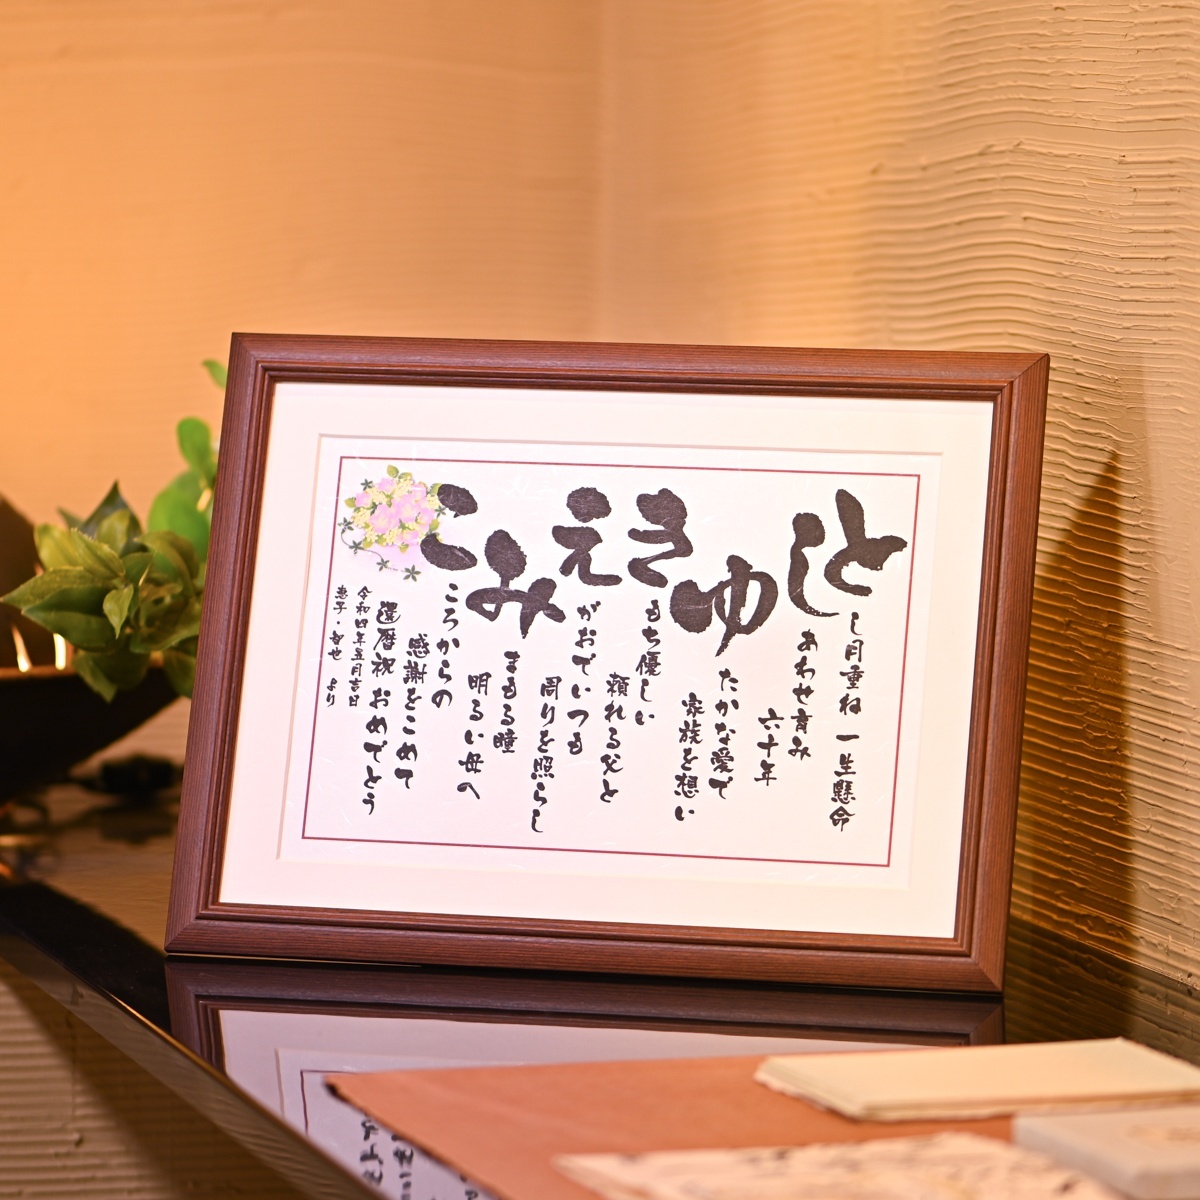 とし月重ね 一生懸命
しあわせ育み
六十年
ゆたかな愛で
家族を想い
きもち優しい
頼れる父と
えがおでいつも
周りを照らし
みまもる瞳
明るい母へ
こころからの
感謝をこめて
還暦祝 おめでとう
令和四年五月吉日
恵子・智也 より